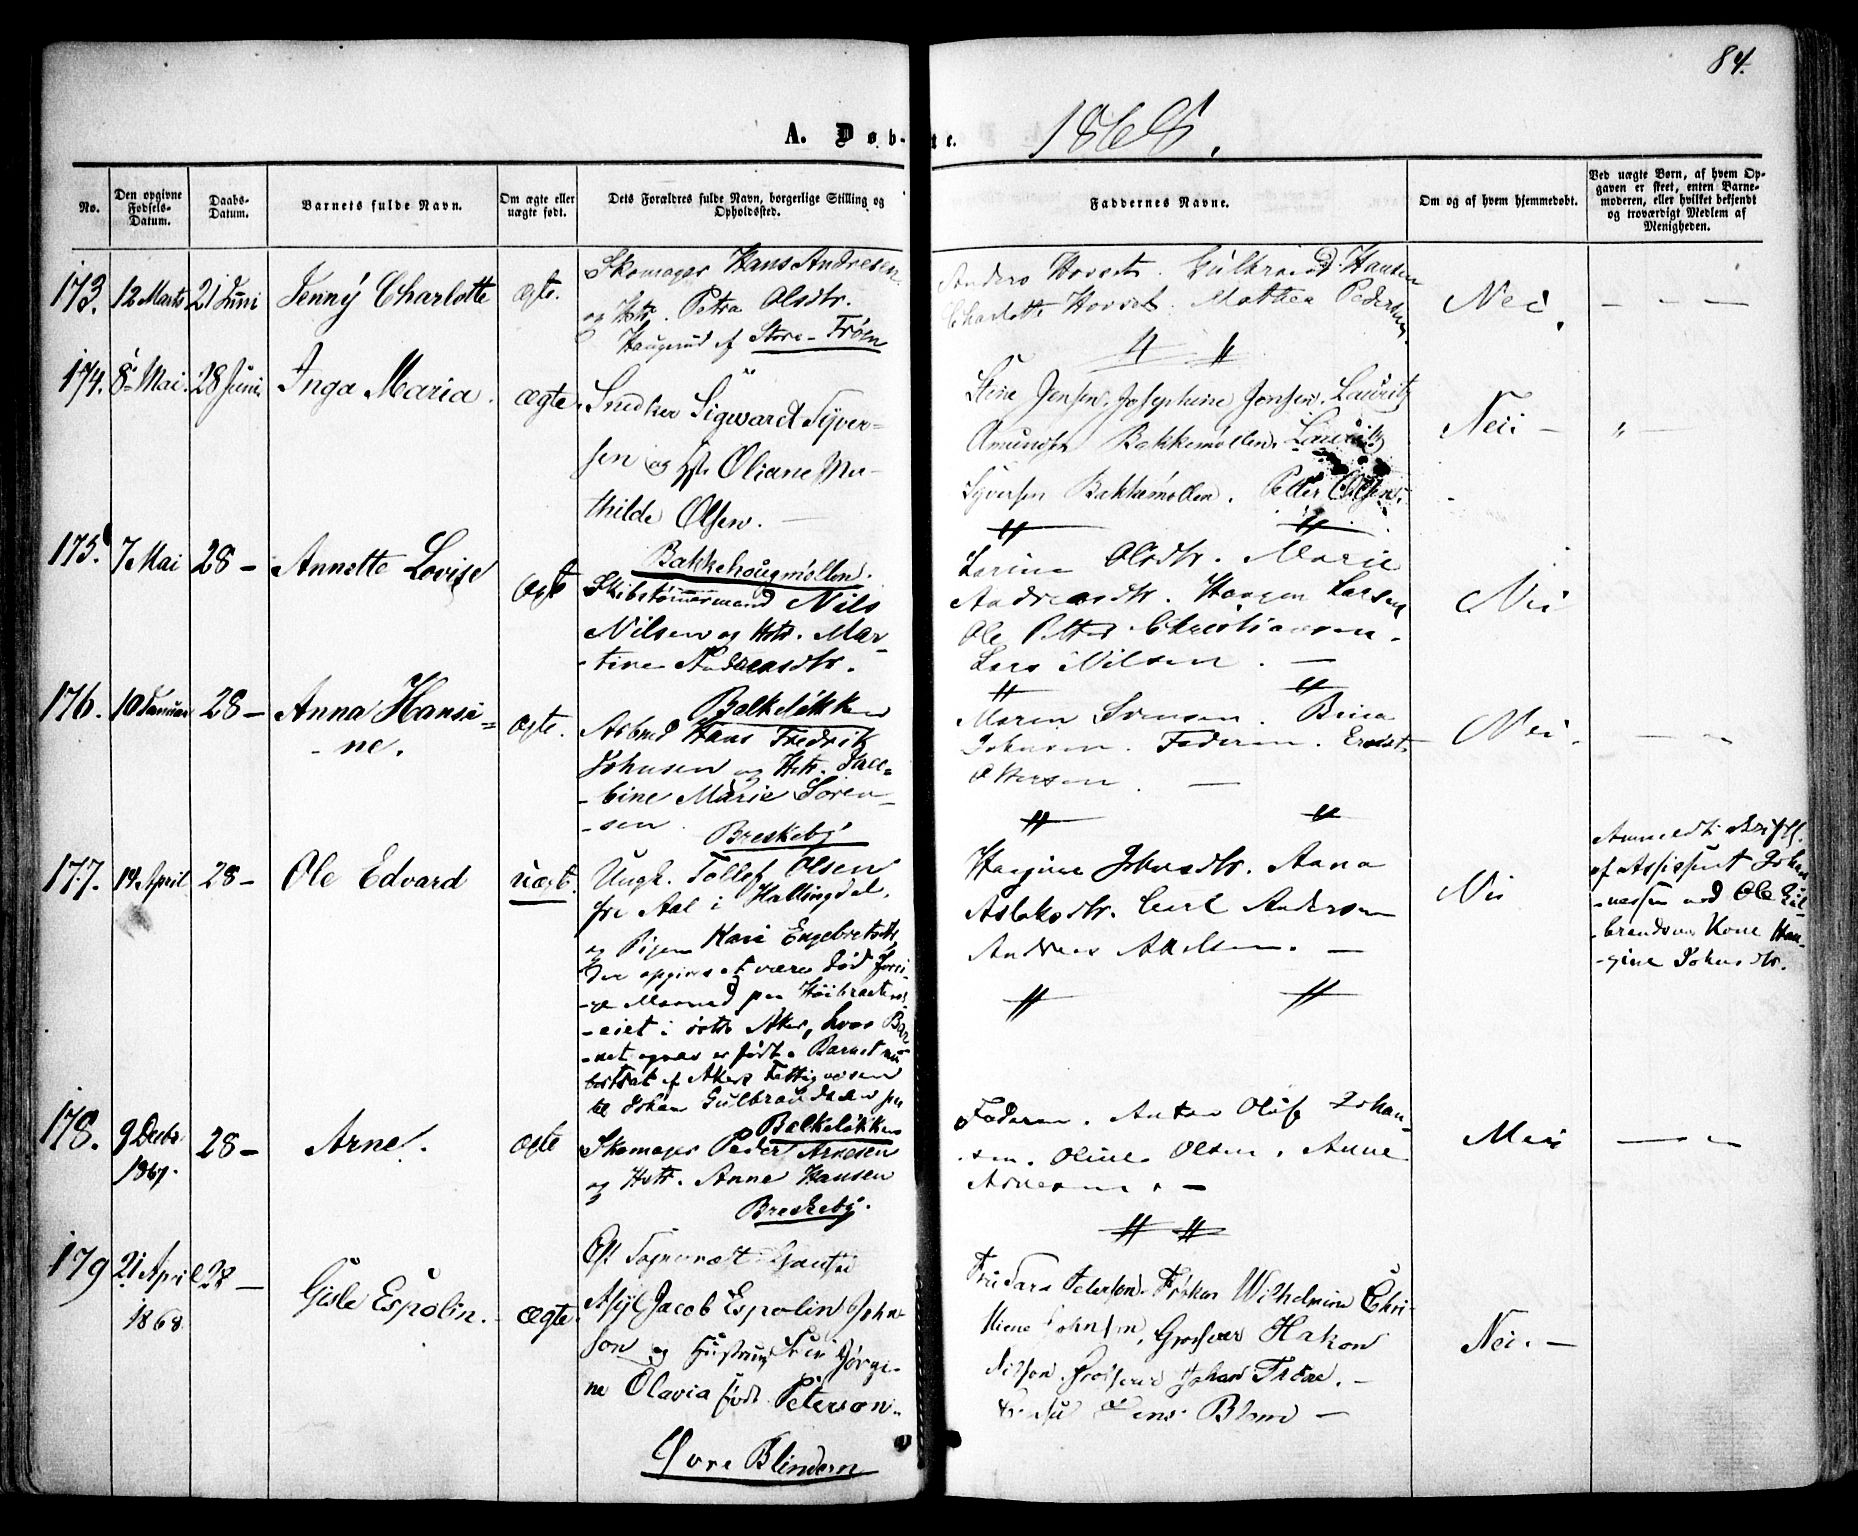 84.
A. Døb- te. 1868.
No.
Den opgivne Fødsels-Datum.
Daabs-Datum.
Barnets fulde Navn.
Om ægte eller uægte født.
Dets Forældres fulde Navn, borgerlige Stilling og Opholdssted.
Faddernes Navne.
Om og af hvem hjemmedøbt.
Ved uægte Børn, af hvem Opgaven er skeet, enten Barnemoderen, eller hvilket bekjendt og troværdigt Medlem af Menigheden.
173. 12 Marts 21 Juni Jenny Charlotte ægte.
Skomager Hans Andresen
og Hstr. Petra Olsdtr.
Haugerud af Store-Frøen
Anders Hovset. Gulbrand Hansen
Charlotte Hovset. Mathea Pedersen
Nei. — — —
174. 8 Mai. 28 Juni. Inga Maria. ægte.
Snedker Sigward Syver-
sen og Hstr Oliane Ma-
thilde Olsen. —
Bakkehaugmøllen.
Stine Jensen, Josephine Jonsen, Lauritz
Amundsen Bakkemøllen, Lauritz
Syversen Bakkemøllen. Petter Olsen.
Nei — " —
175. 7 Mai 28 — Annette Lovise ægte
Skibstømmermand Nils
Nilsen og Hstr. Mar-
-tine Andreasdtr.
Balkeløkken
Larine Olsdtr. Marie
Andreasdtr. Haagen Larsen
Ole Petter Christiansen.
Lars Nilsen. —
Nei
176. 10 Januar 28 — Anna Hansi-
- ne. ægte.
Arbmd Hans Fredrik
Johnsen og Hstr. Jac-
-bine Marie Soren-
-sen.
Breskeby
Maren Svensen. Brina
Johnsen. Faderen. Ernst
Ottersen. —
Nei. — " —
177. 14 April 28 — Ole Edvard uægt.
Ungk. Tollef Olsen
fra Aal i Hallingdal.
og Pigen Kari Engebretsdtr
Der opgives at være død forri-
-ge Maaned paa Høibraaten
-eiet i østre Aker, hvor Bar
-net ogsaa er født. Barnet nu
bortsat af Akers Fattigvæsen
til Johan Gulbrandsen paa
Balkeløkken
Hangine Johnsdtr. Anna
Aslaksdtr. Carl Andersen
Andreas Axelsen. —
Nei
Anmeldt skriftl.
af Assistent Johan
-nessen ved Ole Gul-
-brandsens Kone Han-
-gine Johnsdtr.
178. 9 Decbr 28 — Arne. ægte
1867.
Skomager Peder Arnesen
og Hstr. Anne Hansen
Breskeby.
Faderen. Anton Oluf Johan-
-sen. Oline Olsen. Anne
Arnesen. —
Nei — " —
179 21 April 28 —
1868
Gisle Espolin. ægte.
Jacob Espolin John-
son og Hustru Jørgi-
ne Olavia født Peterson.
Øvre Blindern
Peterson. Frøken Wilhelmine Chri-
stiene Johnson, Grosserer Hakon
Nilson, Grosserer Johan Throne. —
Jens Blom —
Nei. —